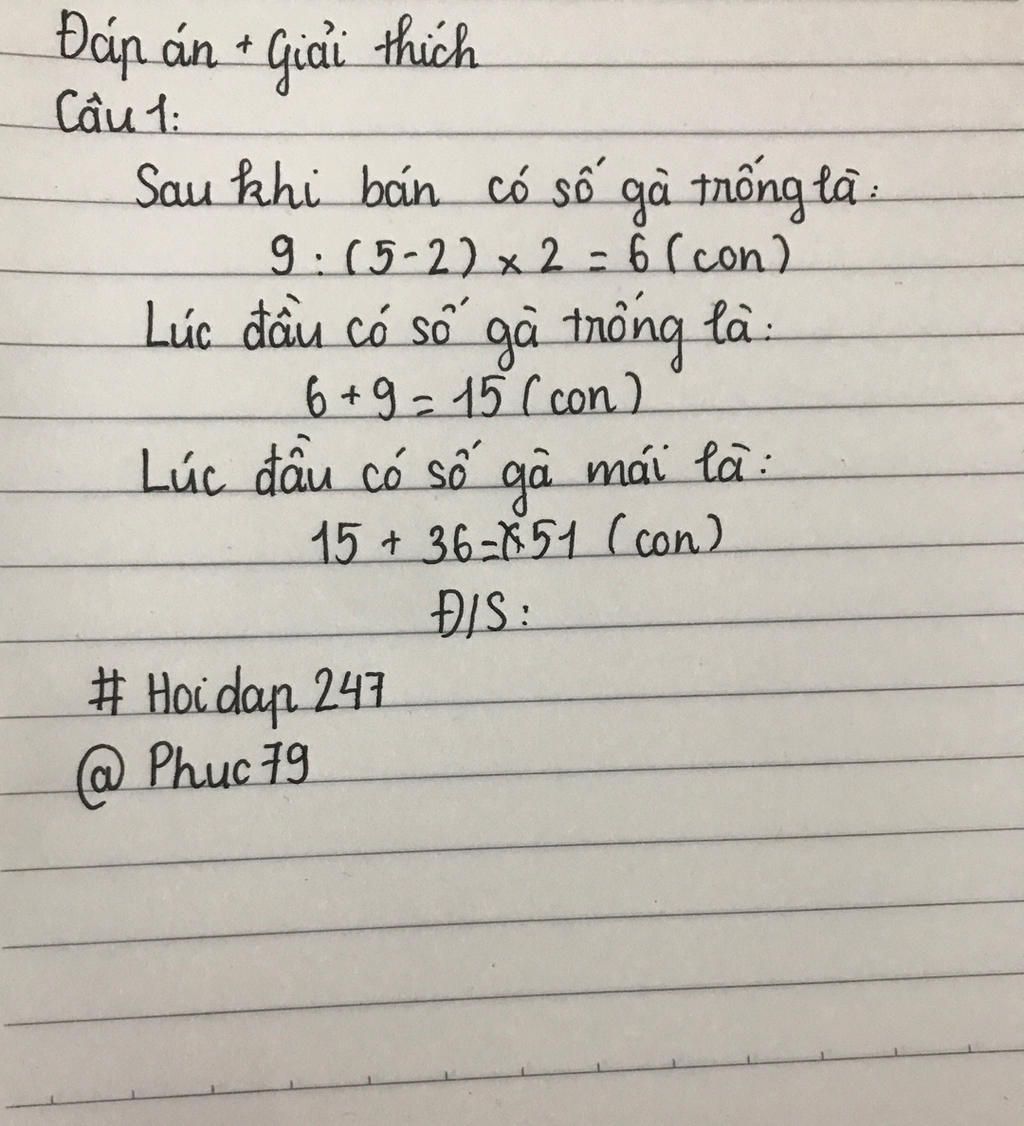 Đáp án + Giải thích
Câu 1:
Sau khi bán có số gà trống là:
9 : (5 - 2) × 2 = 6 (con)
Lúc đầu có số gà trống là:
6 + 9 = 15 (con)
Lúc đầu có số gà mái là:
15 + 36 = 51 (con)
Đ/S:
# Hoidap 247
@ Phuc79